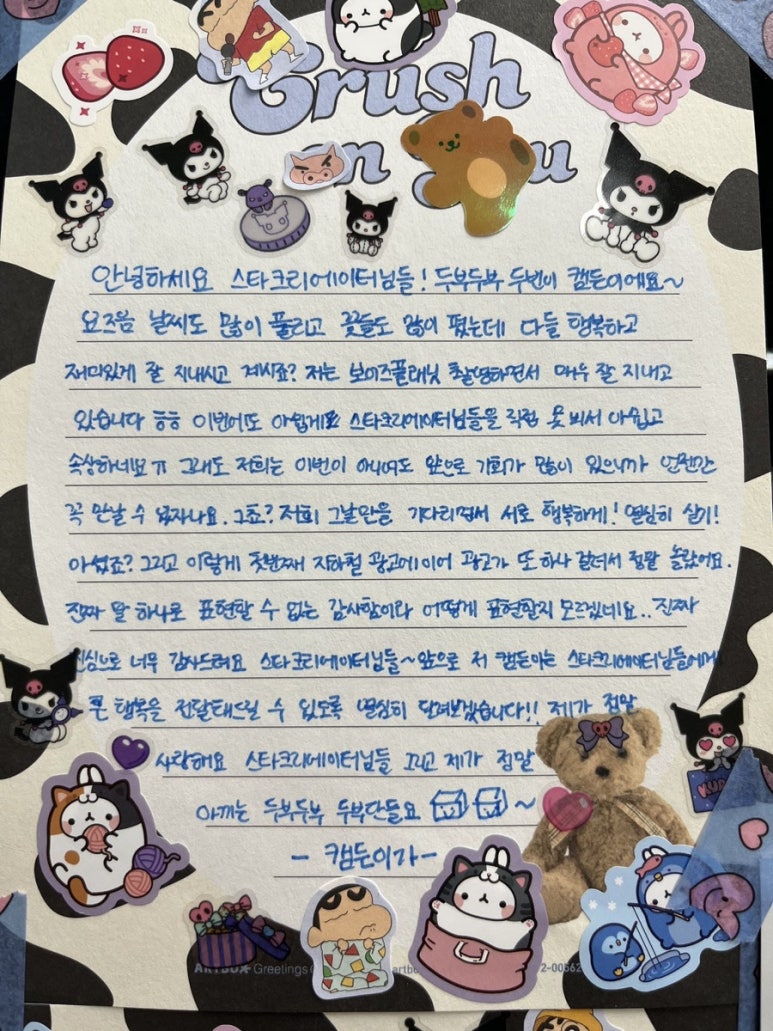 Crush
on You
안녕하세요 스타크리에이터님들! 두부두부 두번이 캠든이에요~
요즈음 날씨도 많이 풀리고 꽃들도 많이 폈는데 다들 행복하고
재미있게 잘 지내시고 계시죠? 저는 보이즈플래닛 촬영하면서 매우 잘 지내고
있습니다 ㅎㅎ 이번에도 아쉽게도 스타크리에이터님들을 직접 못 봬서 아쉽고
속상하네요 ㅠ 그래도 저희는 이번이 아니여도 앞으로 기회가 많이 있으니까 언젠간
꼭 만날 수 있잖아요. 그쵸? 저희 그날만을 기다리면서 서로 행복하게! 열심히 살기!
아셨죠? 그리고 이렇게 첫번째 지하철 광고에이어 광고가 또 하나 걸려서 정말 놀랐어요.
진짜 말 하나로 표현할 수 없는 감사함이라 어떻게 표현할지 모르겠네요.. 진짜
진심으로 너무 감사드려요 스타크리에이터님들~ 앞으로 저 캠든이는 스타크리에이터님들에게
큰 행복을 전달해드릴 수 있도록 열심히 달려보겠습니다!! 제가 정말
사랑해요 스타크리에이터님들 그리고 제가 정말
아끼는 두부두부 두부단들요 ~
- 캠든이가 -
ARTBOX Greetings